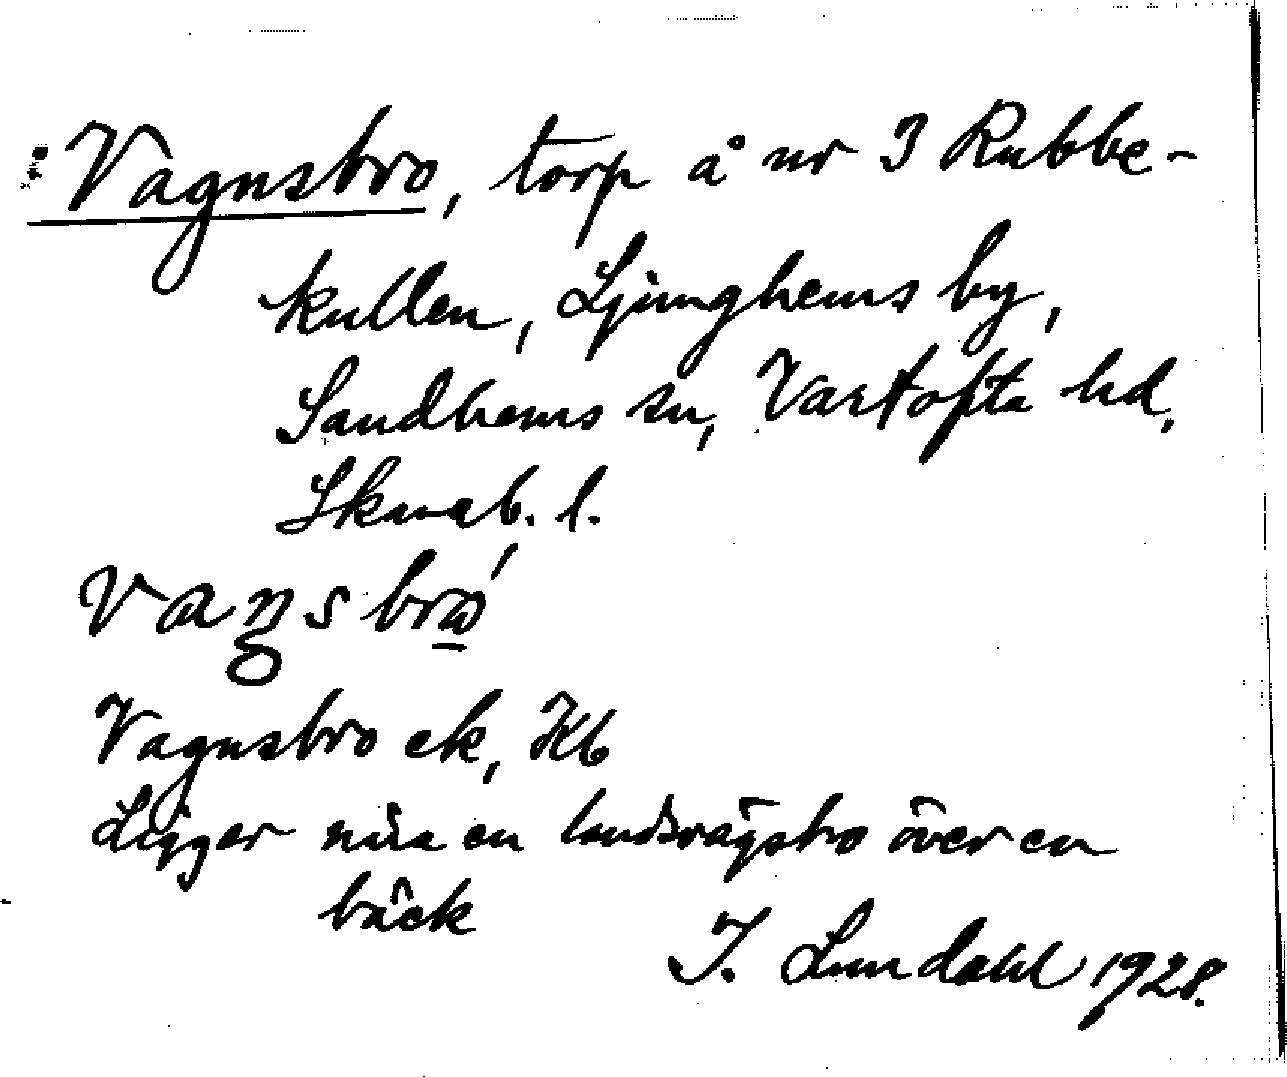 Vagnsbro, torp å nr 3 Rubbe-
kullen, Ljunghems by,
Sandhems sn, Vartofta hd,
Skarab. l.
Vagnsbro ek, Kb
Ligger nära en landsvägsbro över en
bäck
I. Lundahl 1928.